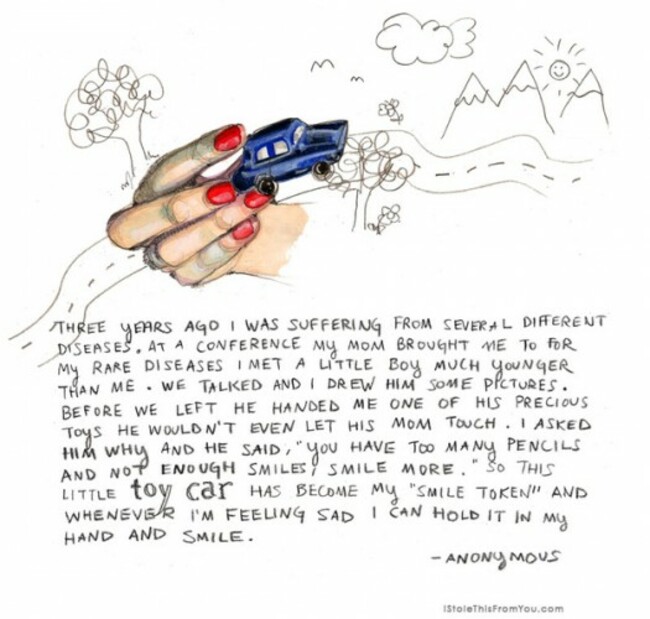 THREE YEARS AGO I WAS SUFFERING FROM SEVERAL DIFFERENT
DISEASES. AT A CONFERENCE MY MOM BROUGHT ME TO FOR
MY RARE DISEASES I MET A LITTLE BOY MUCH YOUNGER
THAN ME. WE TALKED AND I DREW HIM SOME PICTURES.
BEFORE WE LEFT HE HANDED ME ONE OF HIS PRECIOUS
TOYS HE WOULDN'T EVEN LET HIS MOM TOUCH. I ASKED
HIM WHY AND HE SAID, "YOU HAVE TOO MANY PENCILS
AND NOT ENOUGH SMILES, SMILE MORE." SO THIS
LITTLE toy car HAS BECOME MY "SMILE TOKEN" AND
WHENEVER I'M FEELING SAD I CAN HOLD IT IN MY
HAND AND SMILE.
- ANONYMOUS
IStoleThisFromYou.com